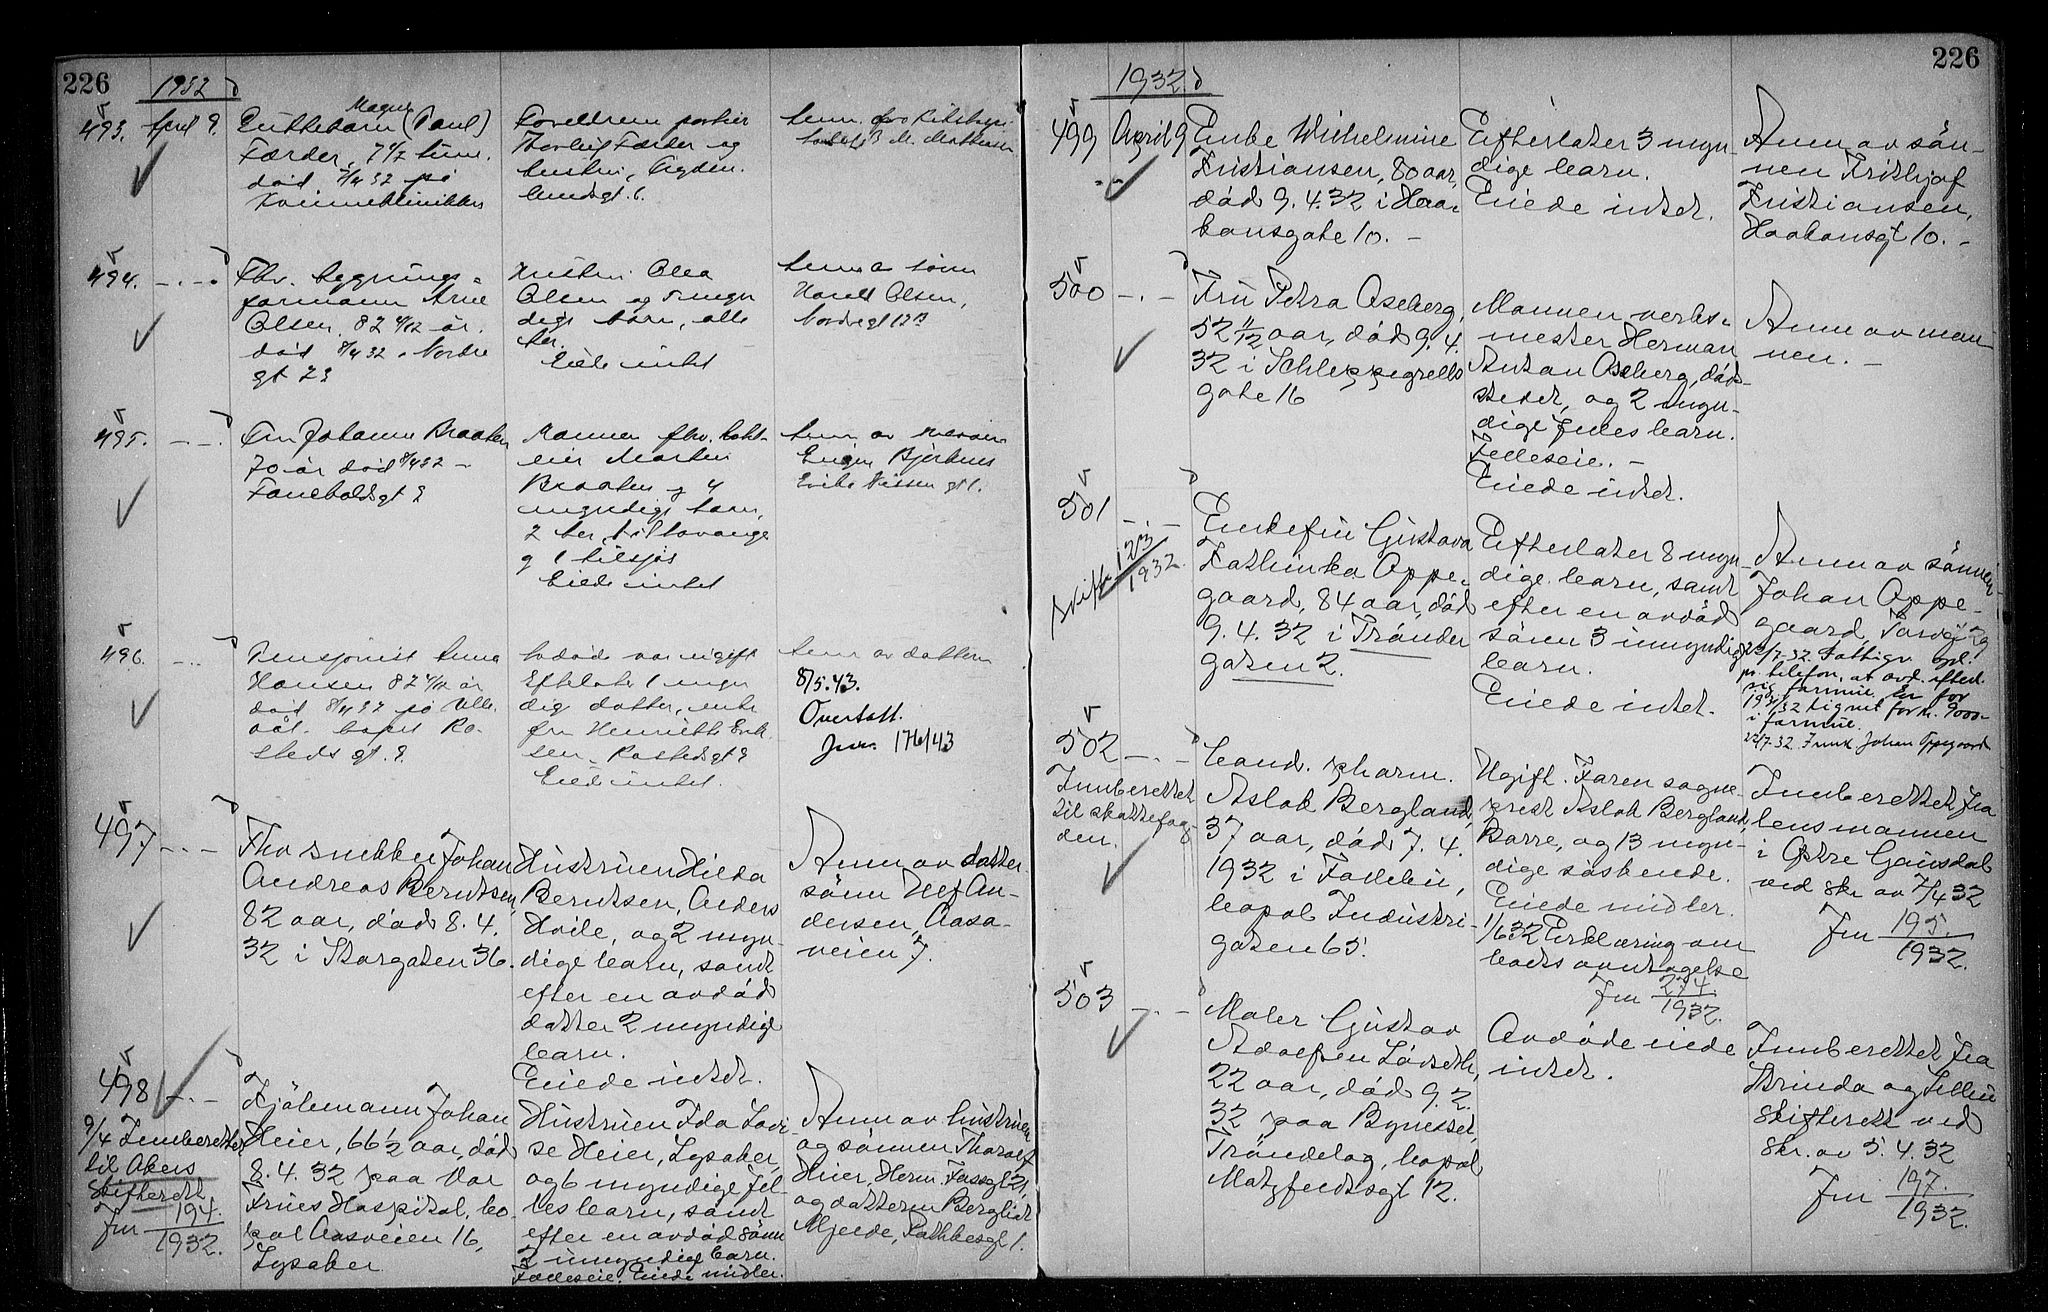 226
1932
493. April 9.
Guttebarn (Paul)
Magnus
Færder, 7 1/2 tim.
død 7/4 32 på
Kvinneklinikken
portier
Thorleif Færder og
hustru,
gt. 6.
494. -.-
Fhv. bygnings-
formann Arne
Olsen, 82 år,
død 8/4 32 Nordre
gt 23
Hustru Olea
Olsen og myn
dige barn, alle
her.
Eiede intet
Anm av sønn
Harald Olsen,
495. -.-
Fru Johanne Braaten
70 år død 8/4 32 -
Mannen fhv.
Morten
Braaten og 4
myndige barn,
2 her,
og 1 tilsjøs
Eiede intet
Anm av
gt 1.
496. -.-
Pensjonist Anna
Hansen 82 år
død 8/4 32 på Ulle
vål. bopel Ro-
steds gt. 9.
Avdøde var ugift
Efterlater 1 myn
dig datter, enke
fru Henriette Erik
sen, Rostedsgt 9
Eiede intet.
Anm av datteren
8/5.43.
Overtatt.
Jnr. 176/43
497 -.-
Fhv snekker Johan
Andreas Berntsen,
82 aar, død 8. 4.
32 i Storgaten 36.
Hustruen Hilda
Berntsen, Anders
Hvile, og 2 myn-
dige barn, samt
efter en avdød
datter 2 myndige
barn.
Eiede intet.
Anm av datter-
sönn Ulf An-
dersen, Aasa-
veien 7.
498 -.-
9/4 Innberettet
til Akers
skifterett
Jnr 194/1932.
Kjölemann Johan
Heier, 66 1/2 aar, død
8. 4. 32 paa Vor
Frues Hospital, bo-
pel Aasveien 16,
Lysaker
Hustruen Ida Lovi
se Heier, Lysaker,
og 6 myndige fel-
les barn, samt
efter en avdød sönn
2 umyndige barn.
Felleseie. Eiede midler.
Anm av hustruen
og sönnen Thoralf
Heier, Herm. Fossgt 21,
og datteren Bergliot
Mjelde,
226
1932.
499 April 9
-.-
Enke Wilhelmine
Kristiansen, 80 aar,
död 9. 4. 32 i Haa-
konsgate 10. -
Efterlater 3 myn-
dige barn.
Eiede intet.
Anm av sön-
nen Frithjof
Kristiansen,
Haakonsgt 10. -
500 -.-
Fru Petra Oseberg,
52 11/12 aar, död 9. 4.
32 i Schleppegrells
gate 16
Mannen verks-
mester Herman
Anton Oseberg, død-
stedet, og 2 myn-
dige felles barn.
Felleseie. -
Eiede intet.
Anm av man
nen. -
501 -.-
Skifte 123/1932.
Enkefru Gustava
Kathinka Oppe-
gaard, 84 aar, död
9. 4. 32 i Trönder
gaten 2.
Efterlater 8 myn-
dige barn, samt
efter en avdöd
sönn 3 umyndige
barn.
Eiede intet.
Anm av sönnen
Johan Oppe-
gaard,
22/7-32. Fattigv. opl.
pr. telefon, at avd. efterl.
sig formue. Er for
1931/32 lignet for kr. 9000-
i formue.
22/7-32. Innk Johan Oppegaard
502 -.-
Innberettet
til skattefog-
den.
Cand. pharm.
Aslak Bergland,
37 aar, död 7. 4.
1932 i Follebu,
bopel Industri-
gaten 65.
Ugift. Faren sogne-
prest Aslak Bergland,
Borre, og 13 myn-
dige söskende.
Eiede midler.
1/6 32 Erklæring om
boets overtagelse
Jnr 274/1932.
Innberettet fra
lensmannen
i Östre Gausdal
ved skr av 7/4 32
Jnr 195./1932.
503 -.-
Maler Gustav
Adolfsen Lövseth,
22 aar, död 9. 2.
32 paa Bynesset,
Tröndelag, bopel
Motzfeldtsgt 12.
Avdöde eiede
intet.
Innberettet fra
Strinda og Selbu
skifterett ved
skr. av 5. 4. 32
Jnr 197./1932.